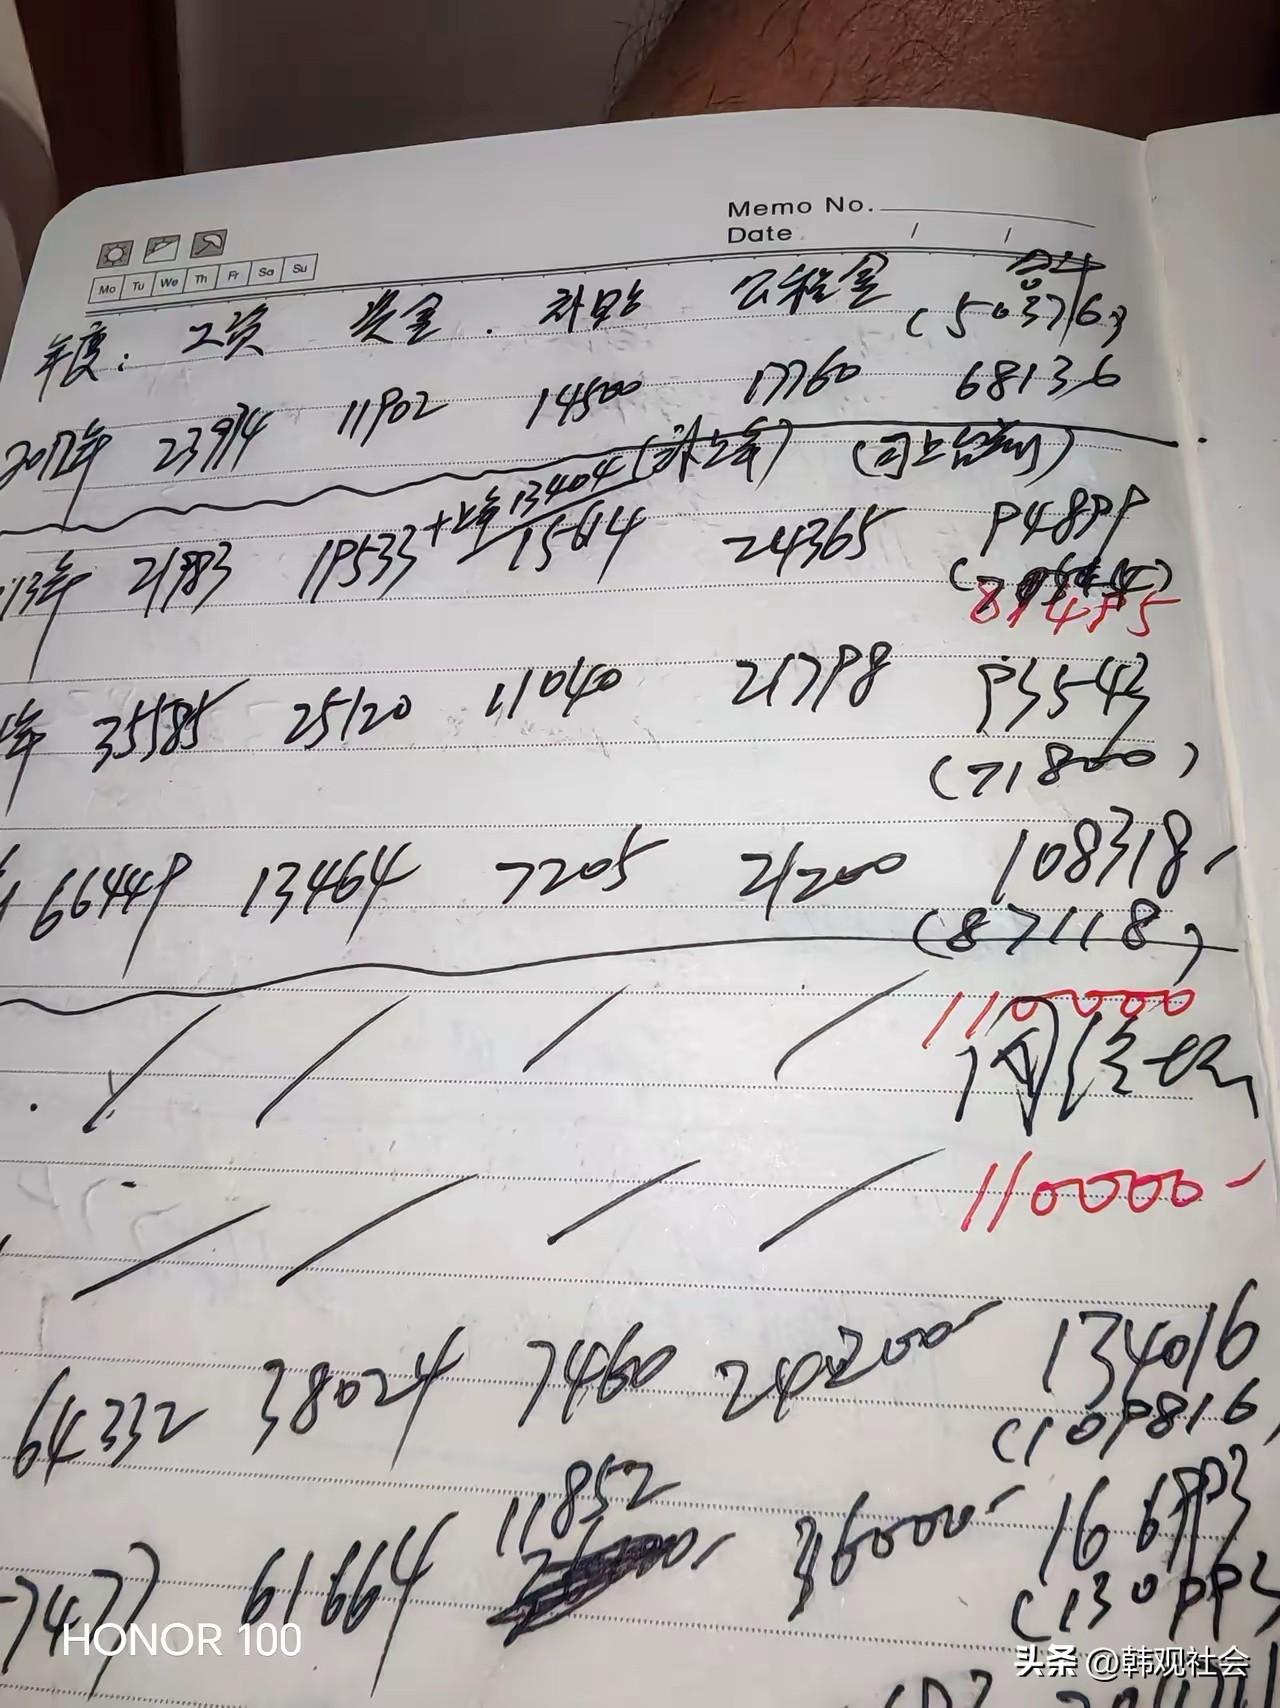 Memo No.
Date / /
Mo Tu We Th Fr Sa Su
年度: 工资 奖金 补贴 公积金 合计
(50376)
2012年 23974 11902 14500 17760 68136
+上年13404(补上年)
13年 21983 19533 15614 24365 94899
年 35585 25120 11040 21798 93543
(71800)
66449 13464 7205 21200 108318
(87118)
110000
110000
64332 38024 7460 24200 134016
(109816)
11852
7477 61664 36000 166993
(130993
HONOR 100
头条 @韩观社会